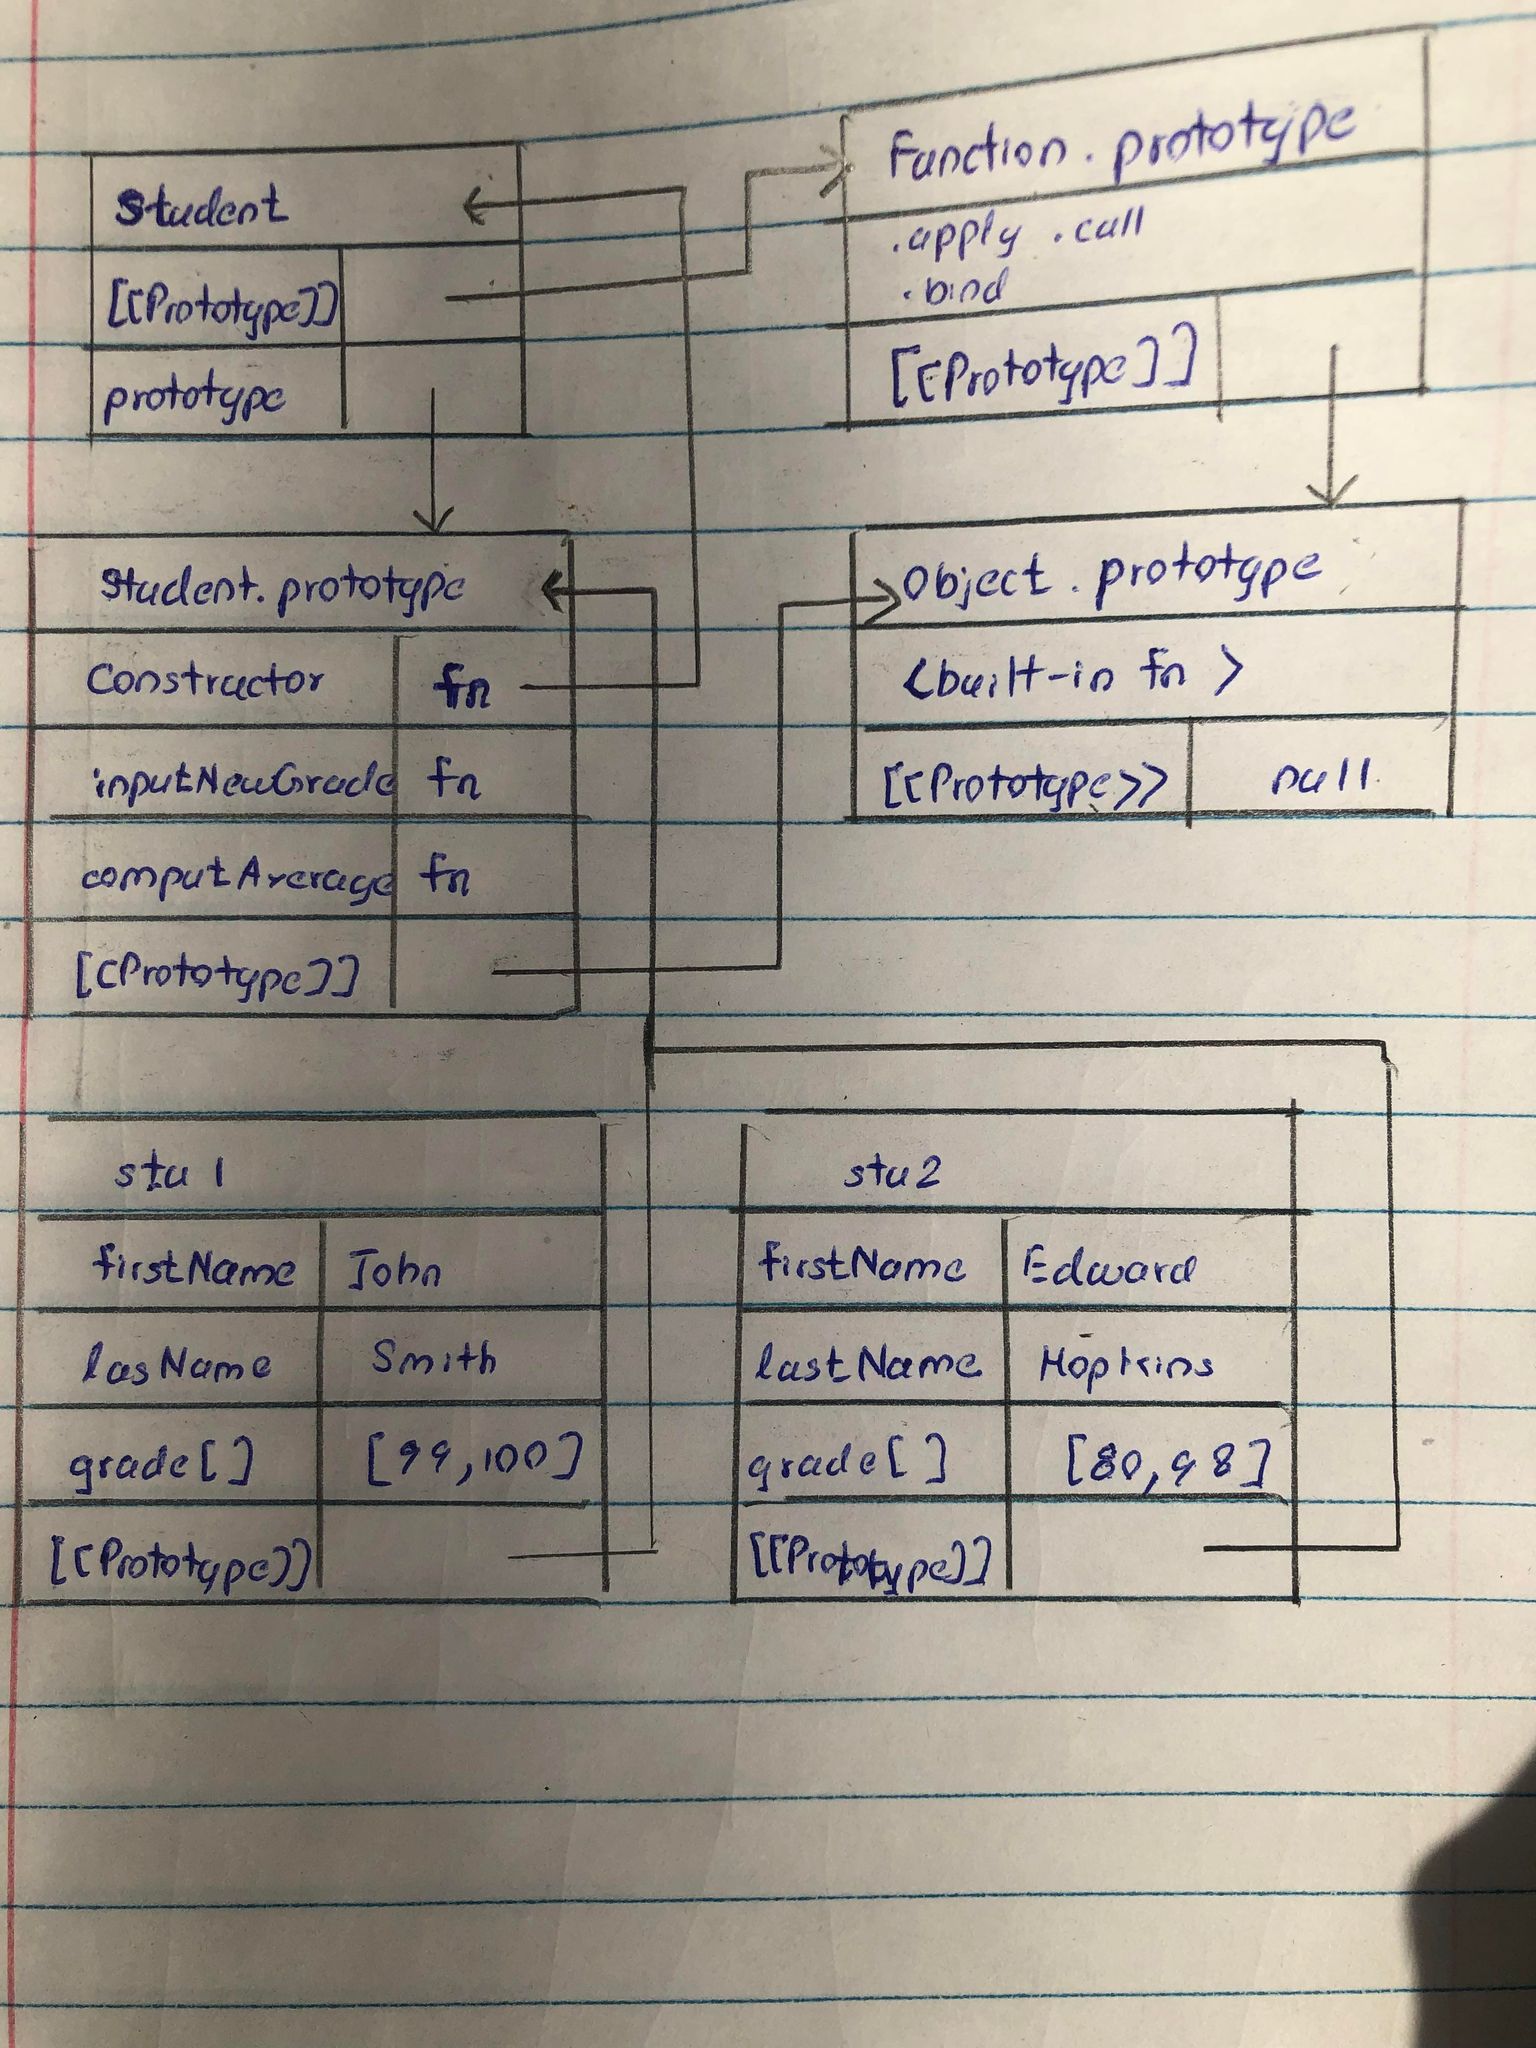 Student
[[Prototype]]
prototype
Function.prototype
.apply .call
.bind
[[Prototype]]
Student.prototype
Constructor fn
inputNewGrade fn
computAverage fn
[[Prototype]]
Object.prototype
<built-in fn>
[[Prototype>> null
stu 1
firstName John
lasName Smith
grade[] [99,100]
[[Prototype]]
stu2
firstName Edward
lastName Hopkins
grade[] [80,98]
[[Prototype]]